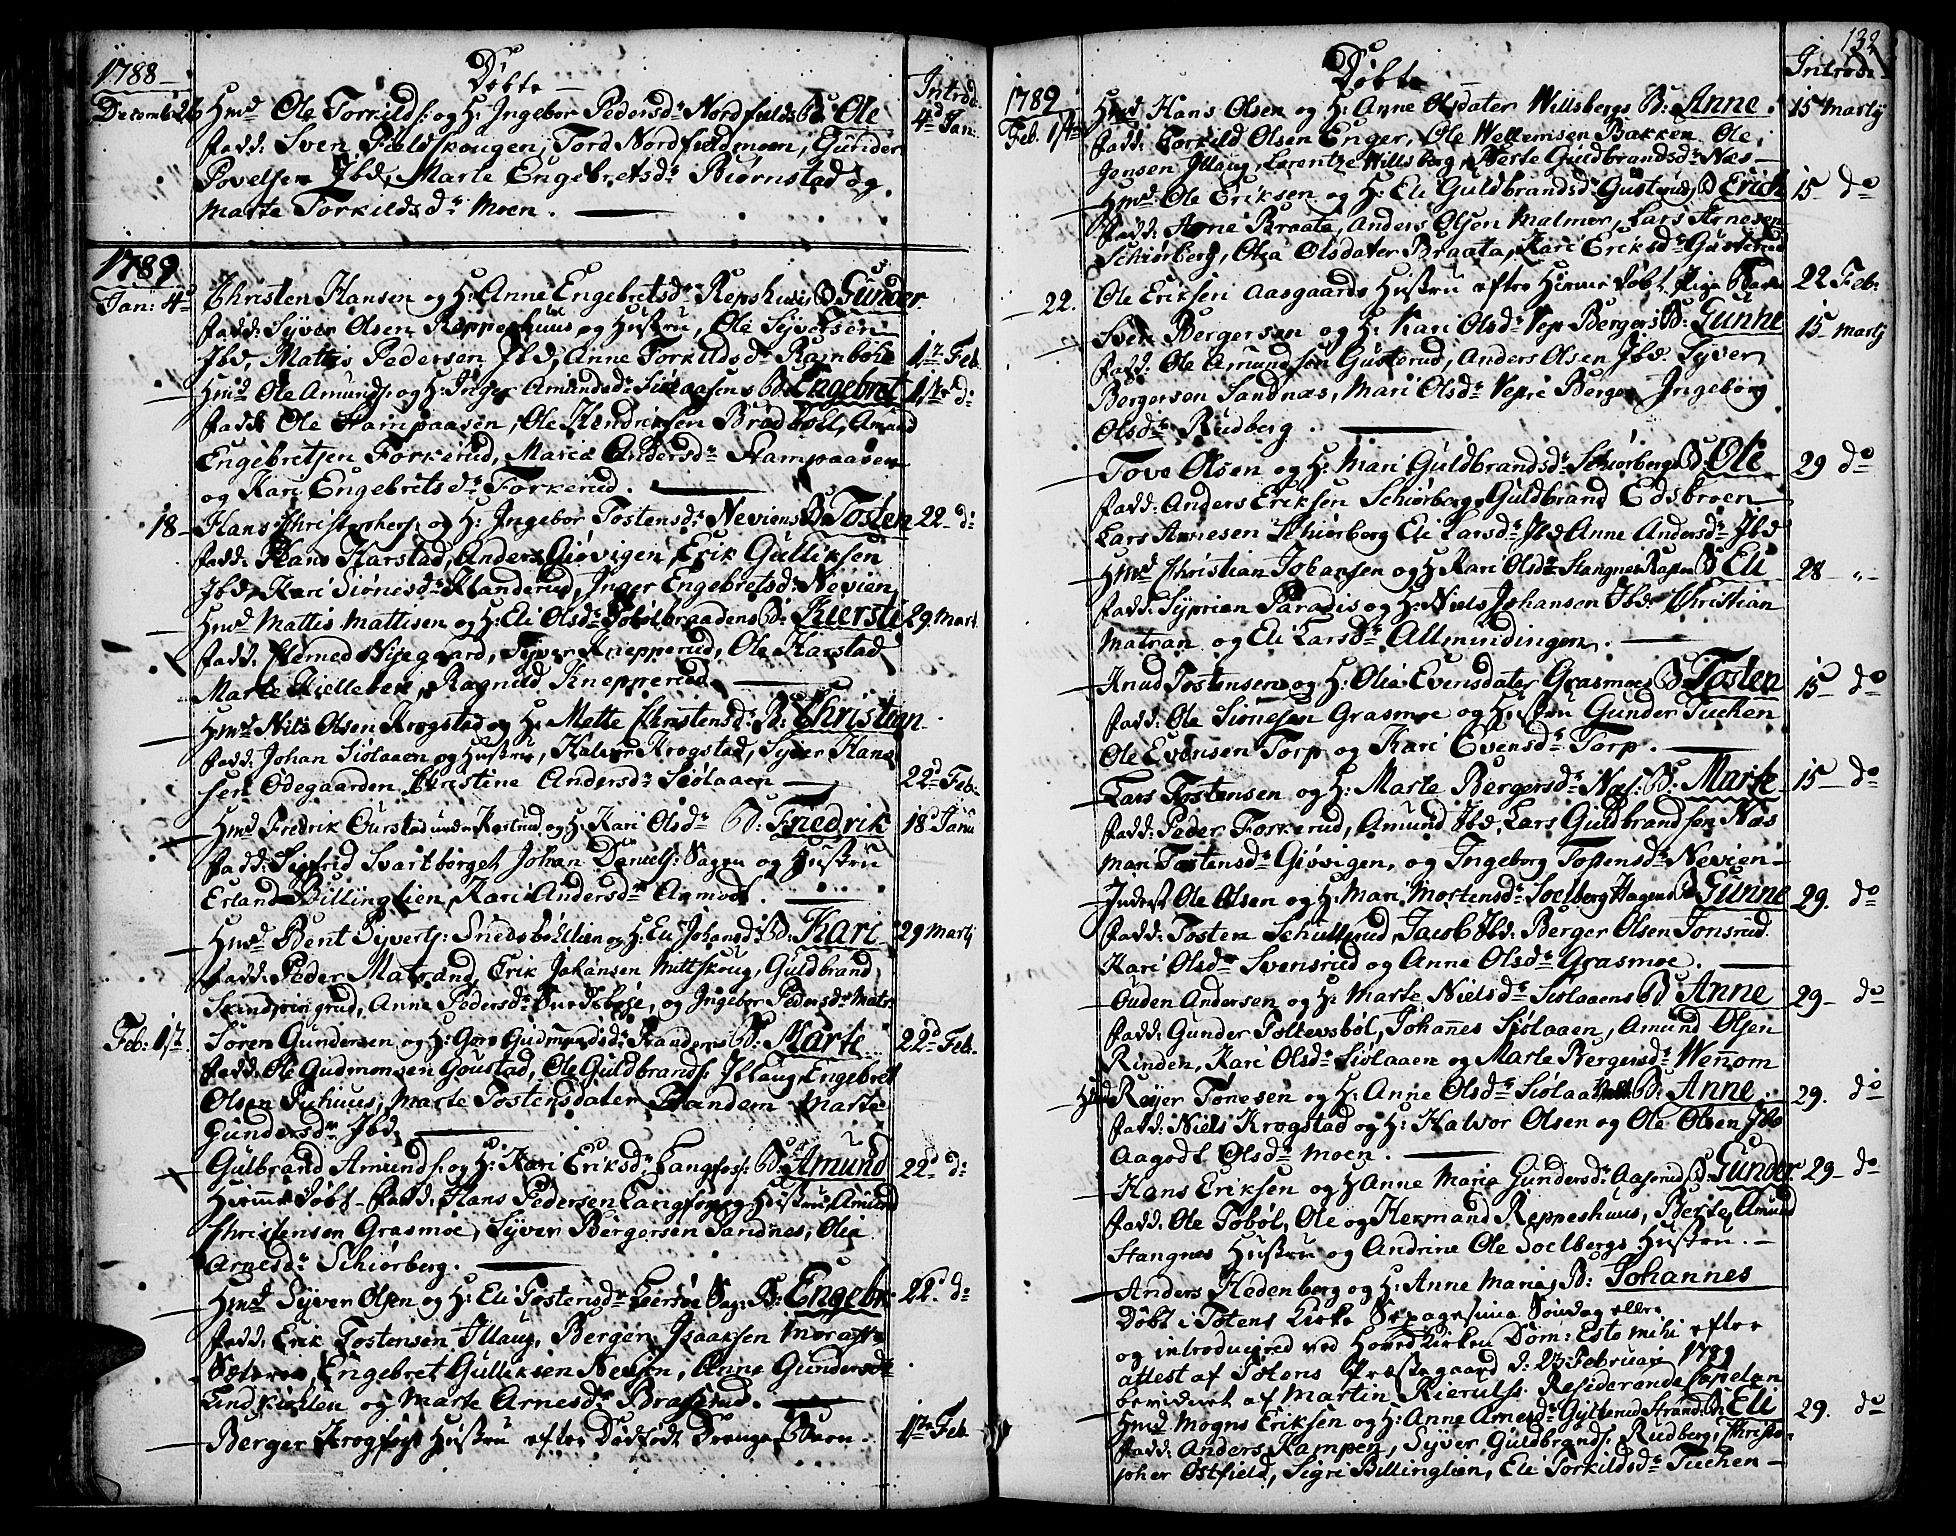 1788 Døbte Introd.
Decemb: 26 Hmd Ole Torkilds: og H: Ingebor Pedersdr Nordfields B: Ole 4d Jan:
fadd: Sven Fieldskougen, Tord Nordfieldmoen, Gunder
Povelsen Jbd, Marte Engebretsdr Biørnstad og
Marte Torkildsdr Moen.
1789
Jan: 4d Christen Hansen og H: Anne Engebretsdr Repshuus B Gunder
fadd: Syver Olsen Reppeshuus og Hustru, Ole Syversen
Jbd, Mattis Pedersen Jbd, Anne Torkildsdr Ramböhl 1ste Feb.
Hmd Ole Amunds: og H: Inger Amundsdr Siølaasens B: Engebret 1ste do
fadd: Ole Stampaasen, Ole Hendriksen Brødböll, Amund
Engebretsen Torkerud, Maria Andersdr Stampaasen
og Kari Engebretsdr Torkerud.
18 Hans Christophers: og H: Ingebor Tostensdr Neviens B Tosten 22 d:
fadd: Hans Harstad, Anders Giøvigen, Erik Gulliksen
Jbd, Kari Siønesdr Kanderud, Inger Engebretsdr Nevien
Hmd Mattis Mattisen og H: Eli Olsdr Tobølbraadens B: Kiersti 29 Mart.
fadd: Nygaard, Syver Knepperud, Ole Harstad
Marte Kiellebek, Ragnild Knepperud
Hmd Nils Olsen Krogstad og H: Mette Christensdr B: Christian
fadd: Johan Siølaaen og Hustru, Halvor Krogstad, Syver Han-
sen Ødegaarden Christine Andersdr Siølaaen 22d Feb.
Hmd Fredrik Ourstad under Rostrud, og H: Kari Olsdr B: Friedrik 18d Janu
fadd: Sigfrid Svartborget Johan Daniels: Sagen og Hustru
Erland Billinglien, Kari Andersdr Aamodt.
Hmd Bent Syverts: Snedsböhllien og H: Eli Johansdr B: Kari 29 Martj
fadd: Peder Matrand, Erik Johansen Mittskoug, Guldbrand
Skindpringrud, Anne Pedersdr, og Ingebor Pedersdr Matr.
Feb: 1ste Søren Gundersen og H: Goro Gudmundsdr Randems B: Marte 22d Feb.
fadd: Ole Gudmonsen Goustad, Ole Guldbrands: Illaug, Engebret
Olsen Puhuus, Marte Tostensdater Randem Marte
Gundersdr Jbd.
Gulbrand Amunds: og H: Kari Eriksdr Langfos: B: Amund 22d d:
Hiemme døbt fadd: Hans Pedersen Langfos og Hustru, Amund
Christensen Grasmoe, Syver Bergersen Sandnes, Olia
Arnesdr Schiørberg.
Hmd Syver Olsen og H: Eli Tostensdr Leirsøe Sag: B: Engebr. 22d do
fadd: Erik Tostensen Illaug, Berger Isaaksen Morast
Sæteren, Engebret Gulliksen Nevien, Anne Gundersdr
Lindkiøhlen og Marte Arnesdr Braserud.
Berger Krogfos Hustru efter Dødfødt Drenge Barn 1ste Feb.
132
1789 Døbte Introd.
Feb. 1ste Hmd Hans Olsen og H: Anne Olsdater Willsbergs B: Anne 15 Martij
fadd: Torkild Olsen Enger, Ole Wellemsen Bakken Ole
Jensen Illaug, Lorentze Willsberg, Berte Guldbrandsdr Næs
Hmd Ole Eriksen og H: Eli Guldbrandsdr Gusterud B Erich 15 do
fadd: Arne Braate, Anders Olsen Malmer, Lars Arnesen
Schiørberg, Olia Olsdater Braata, Kari Eriksdr Gusterud
22. Ole Eriksen Aasgaards Hustru efter Hiemme døbt Pige Barn 22 Feb:
Sven Bergersen og H: Kari Olsdr Vepe Bergers B: Gunne 15 Martj
fadd: Ole Amundsen Gusterud, Anders Olsen Jbd Syver
Bergersen Sandnæs, Mari Olsdr Vepe Berger Ingeborg
Olsdr Rudberg.
Tove Olsen og H: Mari Guldbrandsdr Schiørbergs B: Ole 29 do
fadd: Anders Eriksen Schiørberg, Guldbrand Edsbroen
Lars Arnesen Schiørberg Eli Larsdr Jbd Anne Andersdr Jbd
Hmd Christian Johansen og H: Kari Olsdr Stangnes B Eli 28 "
fadd: Syprian Paradis og H: Niels Johansen Jbd Christian
Matran og Eli Larsdr Allmundingen.
Knud Tostensen og H: Olia Evensdater Grasmoe B Tosten 15 do
fadd: Ole Siønesen Grasmoe og Hustru Gunder Tuchen
Ole Evensen Torp og Kari Evensdr Torp.
Lars Tostensen og H: Marte Bergersdr Næs: B: Marte 15 do
fadd: Peder Torkerud, Amund Jbd, Lars Guldbrandsen Næs
Mari Tostensdr Giøvigen, og Ingeborg Tostensdr Nevien
Inderst Ole Olsen og H: Mari Mortensdr Soelberg Hagen B Gunne 29. do
fadd: Tosten Schullerud, Jacob Jbd. Berger Olsen Tonsrud
Kari Olsdr Svensrud og Anne Olsdr Grasmoe.
Ouden Andersen og H: Marte Nielsdr Siølaaens B Anne 29 do
fadd: Gunder Poltersböl, Johannes Siølaaen, Amund Olsen
Rinden, Kari Olsdr Siølaaen og Marte Bergersdr Wennom
Hmd Reyer Tønesen og H: Anne Olsdr Siølaa B: Anne 29. do
fadd: Niels Krogstad og H: Halvor Olsen og Ole Olsen Jbd
Aagodt Olsdr Moen.
Hans Eriksen og H Anne Maria Gundersdr Aaserud B: Gunder 29 do
fadd: Ole Toböl, Ole og Hermand Reppeshuus, Berte Amund
Stangnes Hustru og Andrine Ole Soelbergs Hustru.
Anders Hedenberg og H: Anne Maria, B: Johannes
Døbt i Totens Kirke Sepagesima Søndag eller
og introducered ved Hoved Kirken Dom: Esto mihi efter
attest af Totens Præstegaard d: 23 Februari 1789
bevidnet af Martin Kierulff Residerende Capelan
Hmd Mogns Eriksen og H: Anne Arnesdr Gytterud Strand: B: Eli 29. do
fadd: Anders Kampen, Syver Guldbrands: Rudberg, Christo-
pher Østfield, Sigri Billinglien, Eli Torkildsdr Tuchen